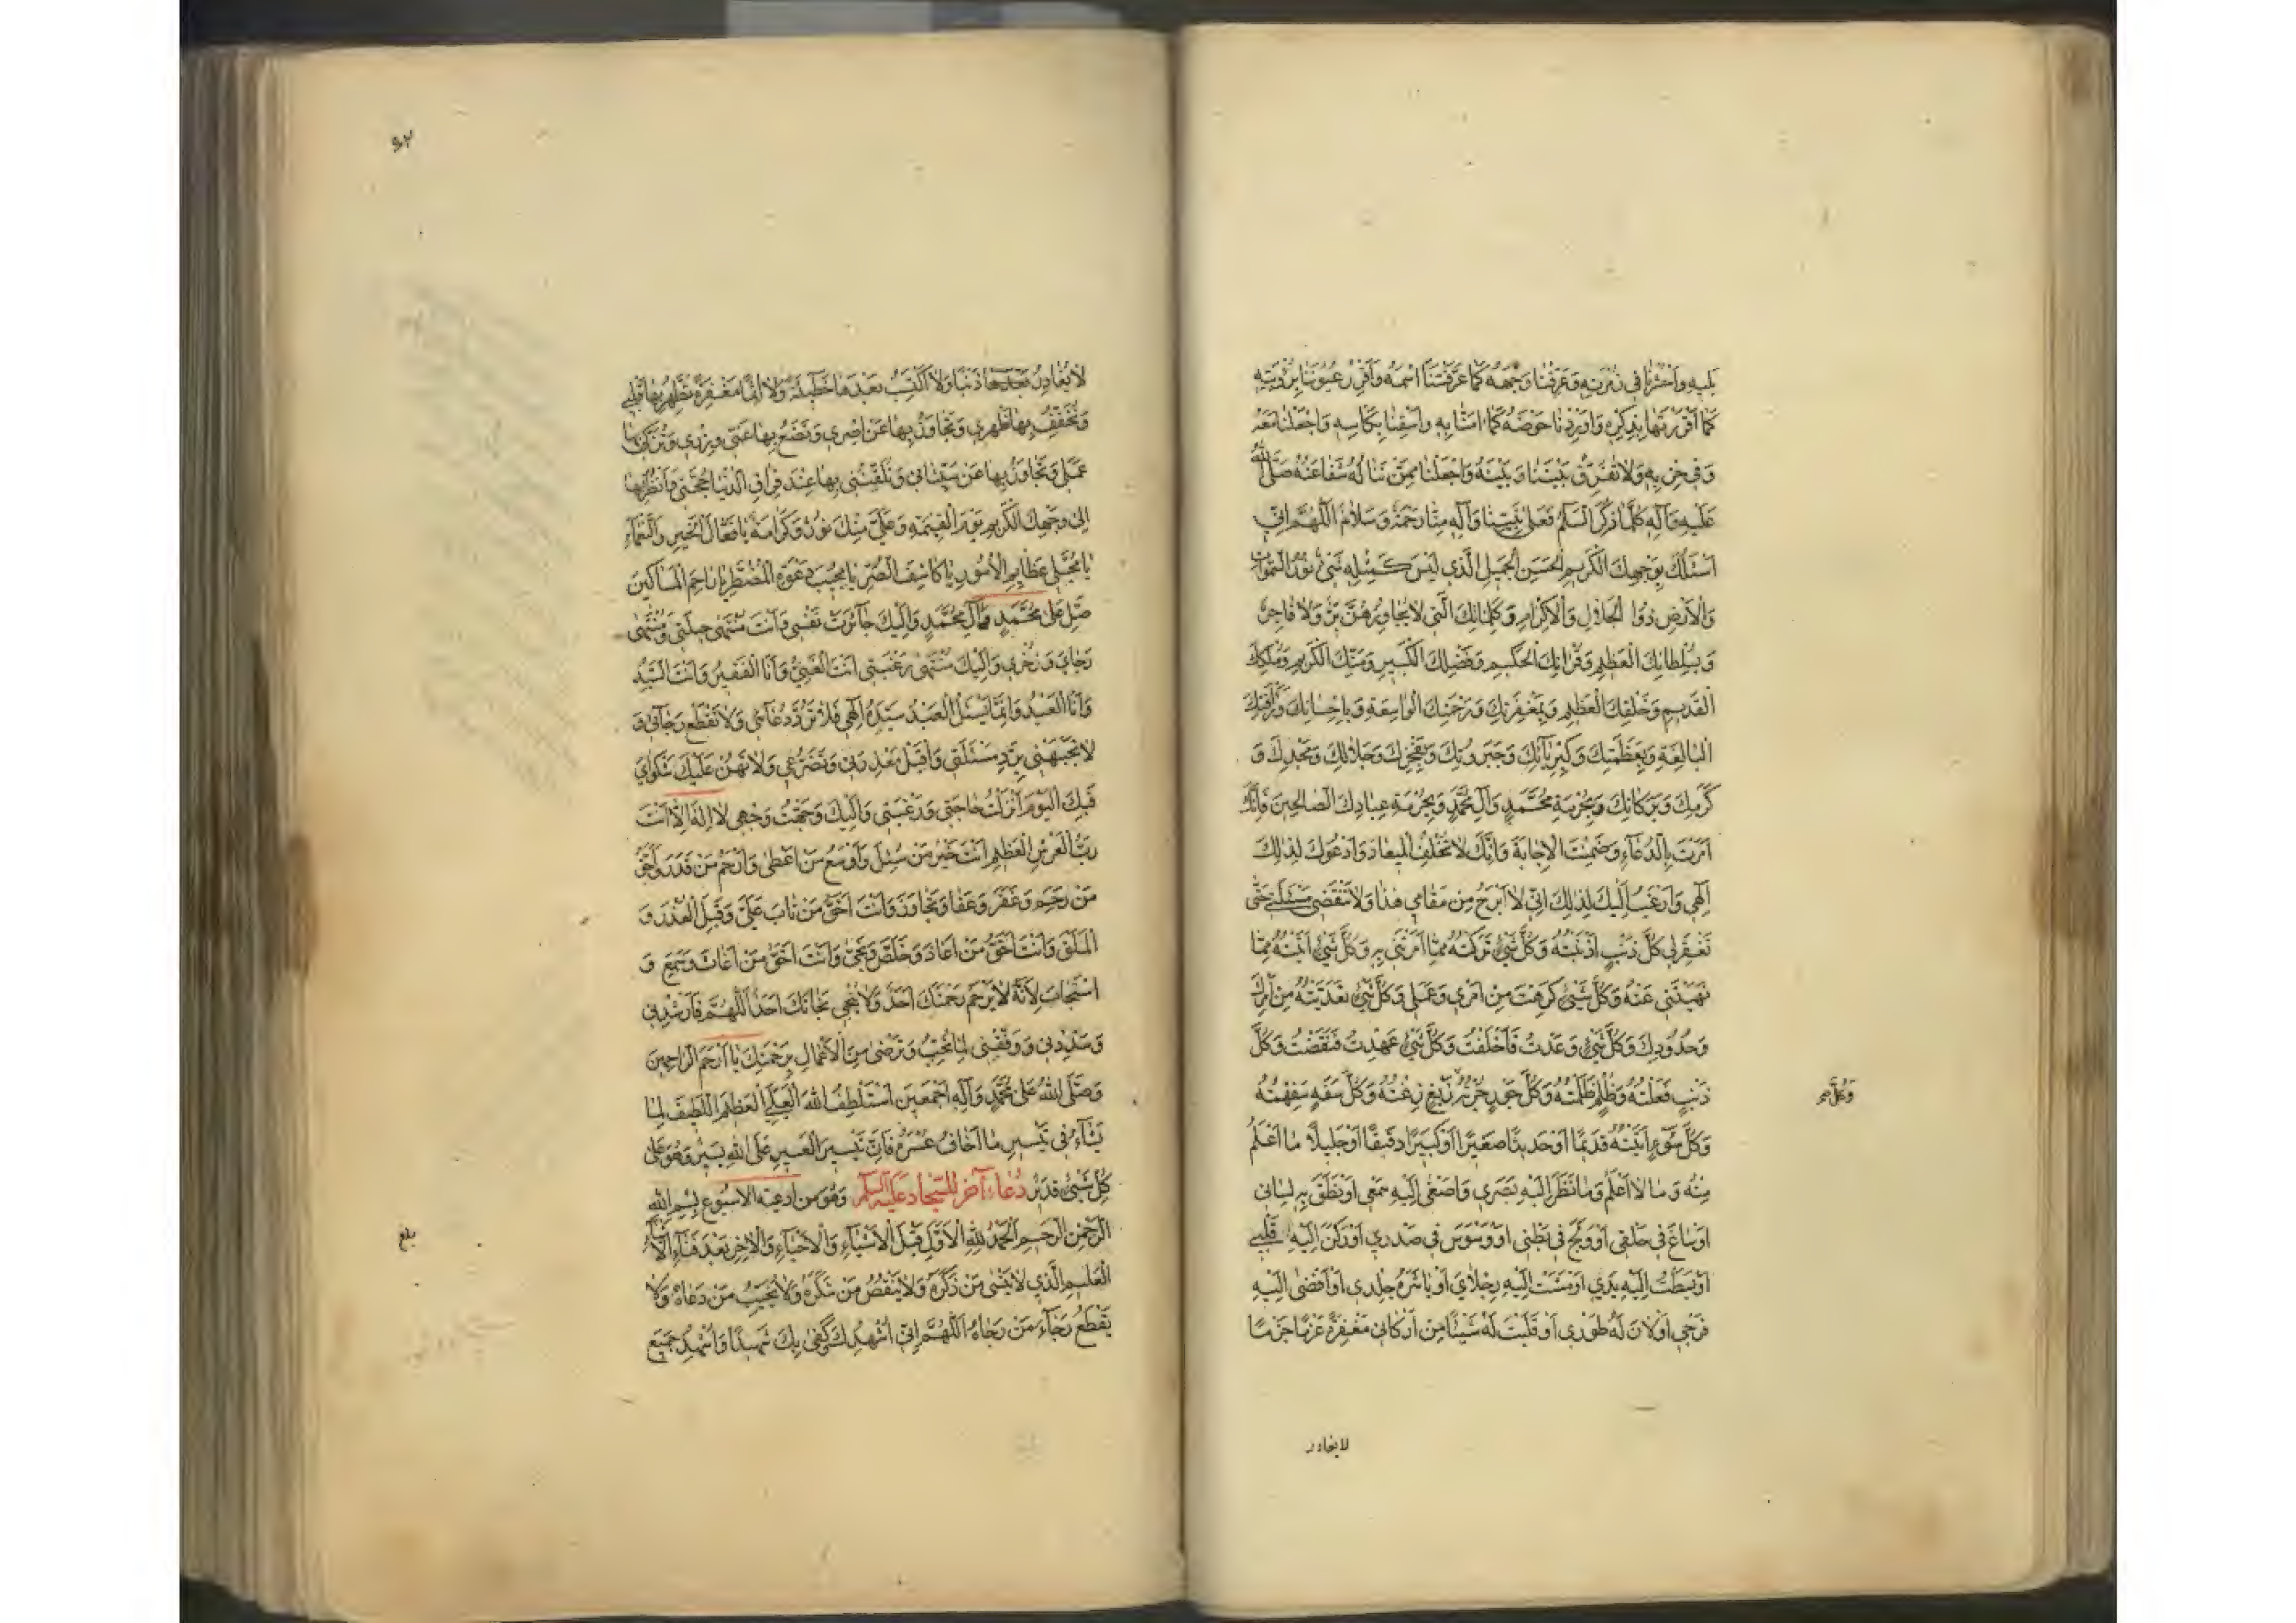 يليه واحشرنا في زمرته وعرفنا وجهه كما عرفتنا اسمه واقرر عيوننا برؤيته
كما اقررتها بذكره واوردنا حوضه كما امنا به واسقنا بكاسه واجعلنا معه
وفي حزبه ولا تفرق بيننا وبينه واجعلنا ممن تناله شفاعته صلى الله
عليه وآله كلما ذكر السلم فعلى نبينا وآله منا رحمة وسلام اللهم اني
اسئلك بوجهك الكريم الحسن الجميل الذي ليس كمثله شئ نور السموات
والارض ذوا الجلال والاكرام وكلماتك التي لا يجاوزهن بر ولا فاجر
وبسلطانك العظيم وقرانك الحكيم وفضلك الكبير ومنك الكريم وملكك
القديم وخلقك العظيم وبمغفرتك ورحمتك الواسعة وباحسانك ورأفتك
البالغة وبعظمتك وكبريآئك وجبروتك وبفخرك وجلالك ومجدك و
كرمك وبركاتك وبحرمة محمد وآل محمد وبحرمة عبادك الصالحين فانك
امرت بالدعآء وضمنت الاجابة وانك لا تخلف الميعاد وادعوك لذلك
الهي وارغب اليك لذلك اني لا ابرح من مقامي هذا ولا تنقضي مسئلتي حتى
تغفر لي كل ذنب اذنبته وكل شئ تركته مما امرتني به وكل شئ اتيته مما
نهيتني عنه وكل شئ كرهت من امري وعملي وكل شئ تعديته من امرك
وحدودك وكل شئ وعدت فاخلفت وكل شئ عهدت فنقضت وكل
ذنب فعلته وظلم ظلمته وكل جور جرته زيغ زغته وكل سفه سفهته
وكل
وكل سوء اتيته قديما او حديثا صغيرا او كبيرا دقيقا او جليلا ما اعلم
منه وما لا اعلم وما نظر اليه بصري واصغى اليه سمعي او نطق به لساني
او ساغ في حلقي او ولج في بطني او وسوس في صدري او ركن اليه قلبي
او بسطت اليه يدي او مشت اليه رجلاي او باشره جلدي او افضى اليه
فرجي او لان له طوري او قلبت له شيئا من اركاني مغفرة عزما جزما
لا يغادر
لا يغادر بعدها ذنبا ولا اكتسب بعدها خطيئة ولا اثما مغفرة تطهر بها قلبي
وتخفف بها ظهري وتجاوز بها عن اصري وتضع بها عني وزري وتزكي بها
عملي وتجاوز بها عن سيئاتي وتلقنني بها عند فراق الدنيا حجتي وانظر بها
الى وجهك الكريم يوم القيمة وعلي منك نور وكرامة يا فعال الخير والنعمآء
يا مجلي عظايم الامور يا كاشف الضر يا مجيب دعوة المضطر يا راحم المساكين
صل على محمد وآل محمد واليك جائرت نفسي وانت منتهى حيلتي ومنتهى
رجاي وذخري واليك منتهى رغبتي انت الغني وانا الفقير وانت السيد
وانا العبد وانما يسئل العبد سيده الهي فلا ترد دعآئي ولا تقطع رجآئي و
لا تجبهني برد مسئلتي واقبل معذرتي وتضرعي ولا تهن عليك شكواي
فبك اليوم انزلت حاجتي ورغبتي واليك وجهت وجهي لا اله الا انت
رب العرش العظيم انت خير من سئل واوسع من اعطى وارحم من قدر واحق
من رحم وغفر وعفا وتجاوز وانت احق من تاب علي وقبل العذر و
الملق وانت احق من اعاذ وخلص ونجى وانت احق من اغاث وسمع و
استجاب لانه لا يرحم رحمتك احد ولا ينجي نجاتك احد اللهم فارشدني
وسددني ووفقني لما تحب وترضى من الاعمال برحمتك يا ارحم الراحمين
وصلى الله على محمد وآله اجمعين استلطف الله العلي العظيم اللطيف لما
يشآء في تيسير ما اخاف عسره فان تيسير العسير على الله يسير وهو على
كل شئ قدير دعاء آخر للسجاد عليه السلم وهو من ادعية الاسبوع بسم الله
الرحمن الرحيم الحمد لله الاول قبل الاشيآء والاحيآء والاخر بعد فنآء الاشيآء
العليم الذي لا ينسى من ذكره ولا ينقص من شكره ولا يخيب من دعاه ولا
يقطع رجآء من رجاه اللهم اني اشهدك وكفى بك شهيدا واشهد جميع
بلغ